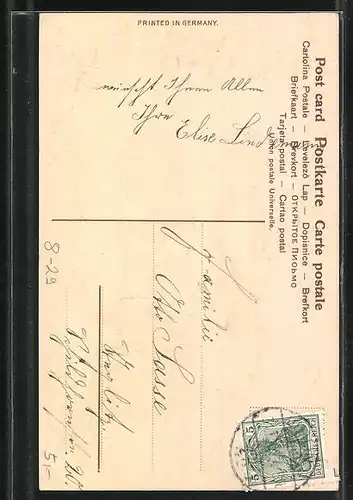 PRINTED IN GERMANY.
wünscht Ihnen Allen
Ihre
Elise
Post card Postkarte Carte postale
Cartolina Postale — Levelező Lap — Dopisnice — Brefkort
Briefkaart — Brevkort — ОТКРЫТОЕ ПИСЬМО
Tarjeta postal — Cartao postal
Union postale Universelle.
Familie
Otto Sasse
8-29
5,-
5
5